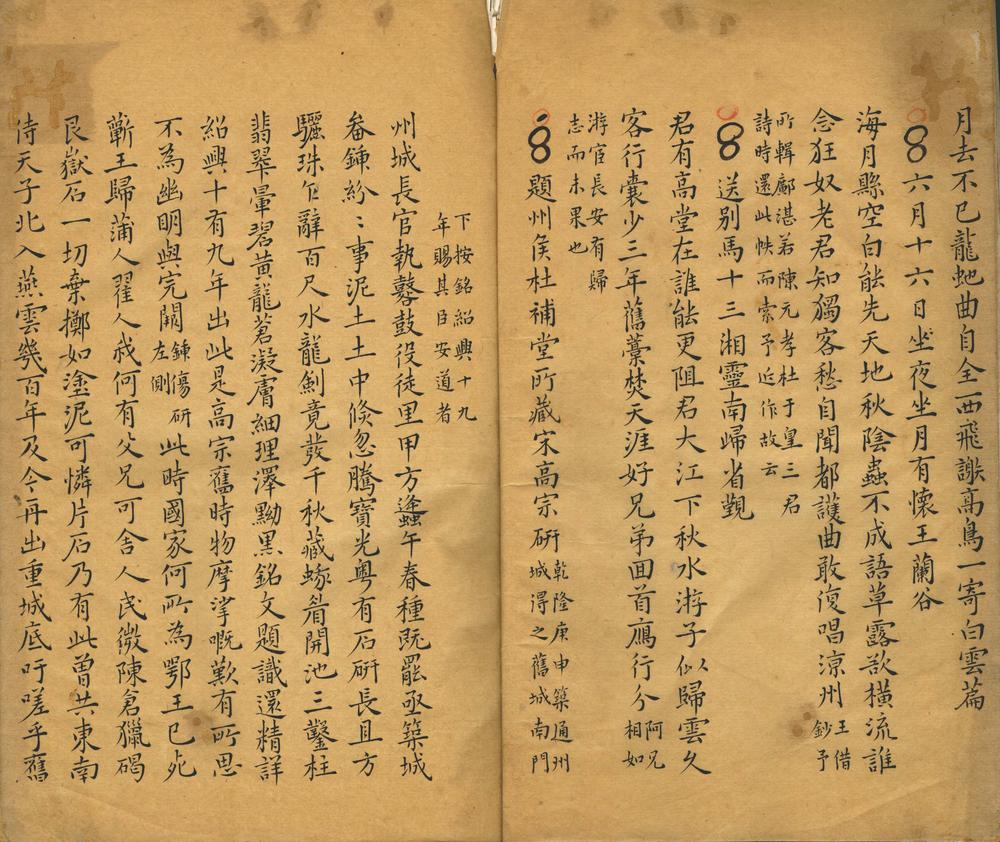 月去不已龍虵曲自全一西飛謝高鳥一寄白雲篇
六月十六日坐夜坐月有懷王蘭谷
海月縣空白能先天地秋陰蟲不成語草露欲橫流誰
念狂奴老君知獨客愁自聞都護曲敢復唱涼州王借鈔予
所輯鄺湛若陳元孝杜于皇三君
詩時還此帙而索予近作故云
送別馬十三湘靈南歸省覲
君有高堂在誰能更阻君大江下秋水游子似歸雲久
客行囊少三年舊藁焚天涯好兄弟回首鴈行分阿兄相如
游宦長安有歸
志而未果也
題州矦杜補堂所藏宋高宗硏乾隆庚申築通州城得之舊城南門
下按銘紹興十九
年賜其臣安道者
州城長官執鼛鼓役徒里甲方蠭午春種旣罷亟築城
畚鍤紛〻事泥土土中倐忽騰寶光粵有石硏長且方
驪珠乍辭百尺水龍劍竟發千秋藏蜍脣開池三鑿柱
翡翠暈碧黃龍蒼凝膚細理澤黝黑銘文題識還精詳
紹興十有九年出此是高宗舊時物摩挲嘅歎有所思
不為幽明與完闕鍤傷硏左側此時國家何所為鄂王已死
蘄王歸蒲人翟人戕何有父兄可舍人民微陳倉獵碣
艮嶽石一切棄擲如塗泥可憐片石乃有此曾共東南
侍天子北入燕雲幾百年及今再出重城底吁嗟乎舊